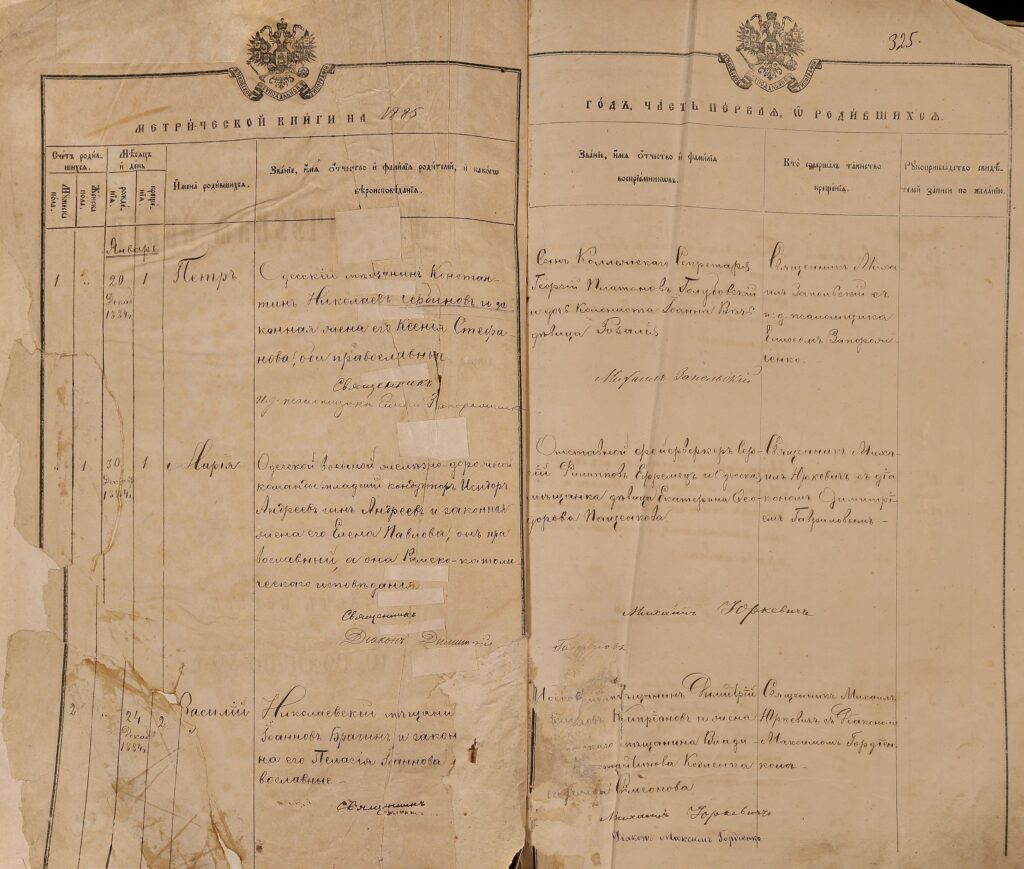 325.
МЕТРИЧЕСКОЙ КНИГИ НА 1885
ГОДЪ, ЧАСТЬ ПЕРВАЯ, Ѡ РОДИВШИХСЯ.
Счетъ родив-
шихся.
Мужеска
пола.
Женска
пола.
Мѣсяцъ
и день
рожде-
нія.
креще-
нія.
Имена родившихся.
Званіе, имя отчество и фамилія родителей, и какого
вѣроисповѣданія.
Званіе, имя отчество и фамилія
воспріемниковъ.
Кто совершалъ таинство
крещенія.
Рукоприкладство свидѣ-
телей записи по желанію.
Январь
1
20
Декаб.
1884г.
1
Петръ
Одесскій мѣщанинъ Констан-
тинъ Николаевъ Сербиновъ и за-
конная жена его Ксенія Стефа-
нова, оба православные
Священникъ
и.д. псаломщика
Сынъ Коллежскаго Секретаря
Георгій Платоновъ Голубовскій
и дочь Колониста Іоанна
дѣвица Розалія
Михаилъ Запольскій
Священникъ Миха-
илъ Запольскій съ
и.д. псаломщика
Елисеемъ Запорож-
ченко.
1
30
Декаб.
1884г.
1
Марія
Одесской военной желѣзно-дорожной
команды младшій кондукторъ Исидоръ
Андреевъ сынъ Андреевъ и законная
жена его Елена Павлова, онъ пра-
вославный, а она Римско-католи-
ческаго исповѣданія
Священникъ
Діаконъ Димитрій
Отставной фейерверкеръ Сер-
гій Филиповъ Ефремецъ и Одесская
мѣщанка дѣвица Екатерина Ѳео-
дорова Пащенкова
Михаилъ Юркевичъ
Гавриловъ
Священникъ Миха-
илъ Юркевичъ съ діа-
кономъ Димитрі-
емъ Гавриловымъ
2
24
Декаб.
1884г.
2
Василій
Николаевскій мѣщани
Іоанновъ Брагинъ и закон
на его Пелагія Іоаннова
вославные
Священникъ
мѣщанинъ Димитрій
Кипріановъ и жена
мѣщанина Влади-
Козленка
Симеонова
Михаилъ Юркевичъ
Діаконъ Максимъ Гордіенко
Священникъ Михаилъ
Юркевичъ съ Діакономъ
Максимомъ Гордіен-
комъ